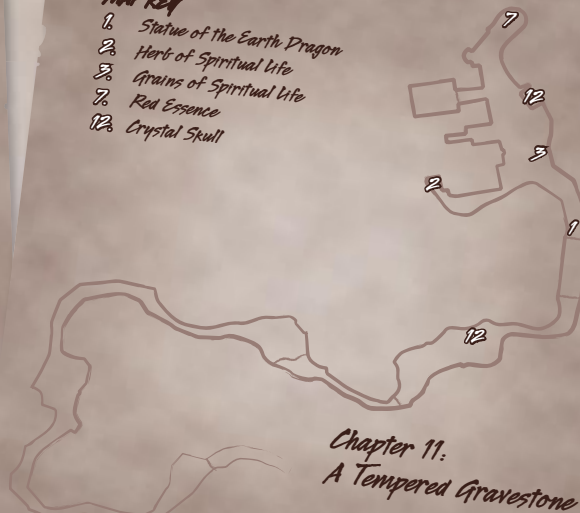 1. Statue of the Earth Dragon
2. Herb of Spiritual Life
3. Grains of Spiritual Life
7. Red Essence
12. Crystal Skull
7
12
3
2
1
12
Chapter 11:
A Tempered Gravestone